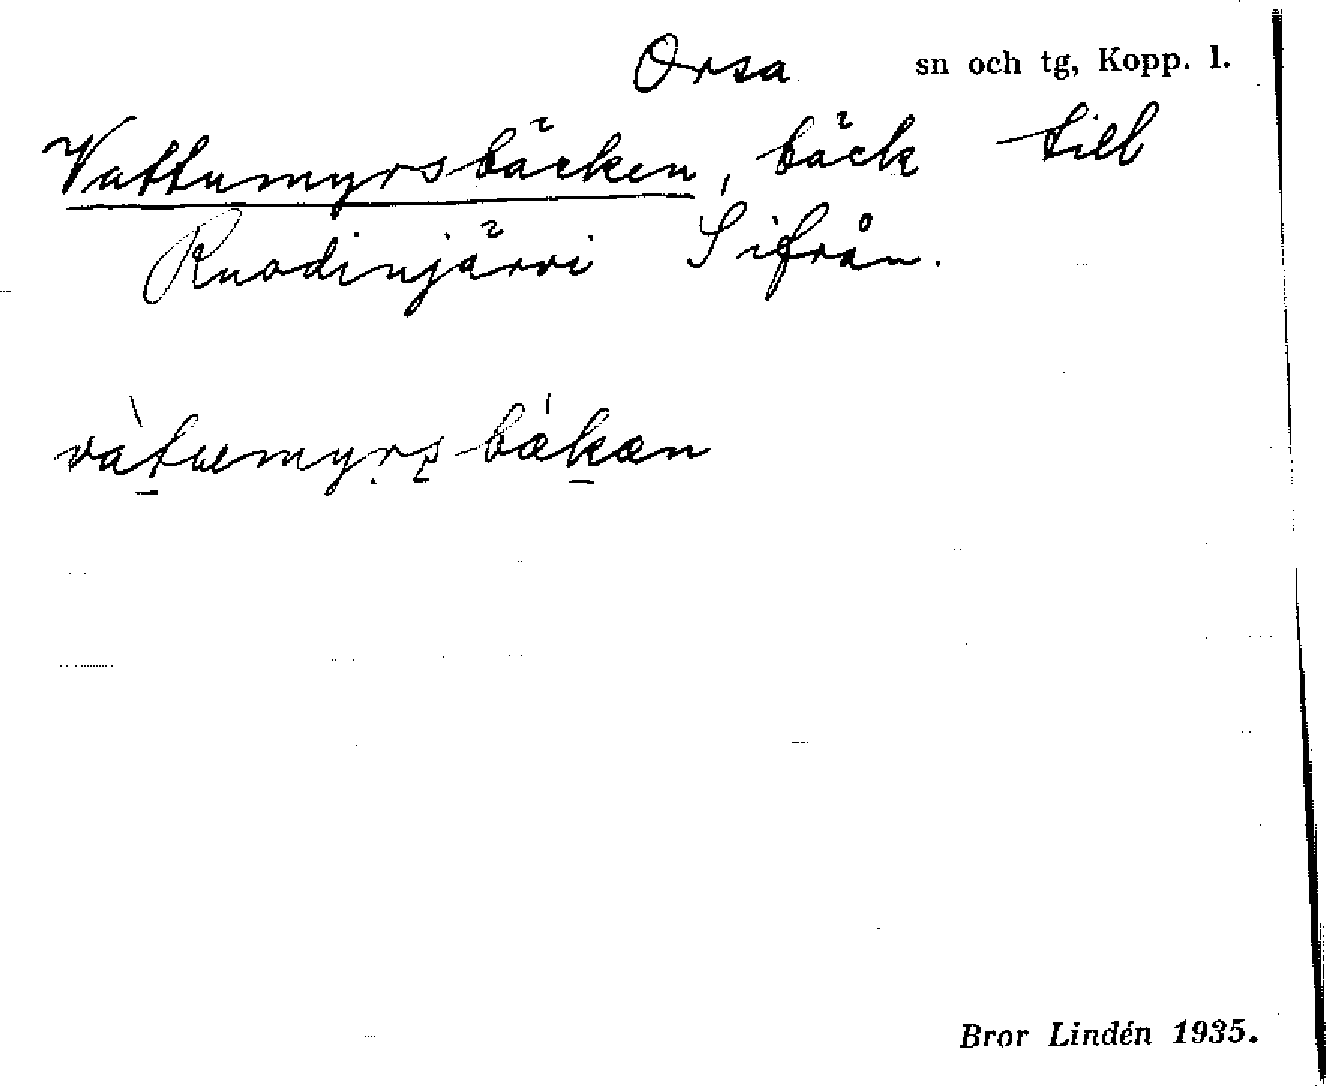 Orsa sn och tg, Kopp. l.
Vattumyrsbäcken, bäck till
Ruodinjärvi S ifrån.
vàtuemyrsbækæn
Bror Lindén 1935.